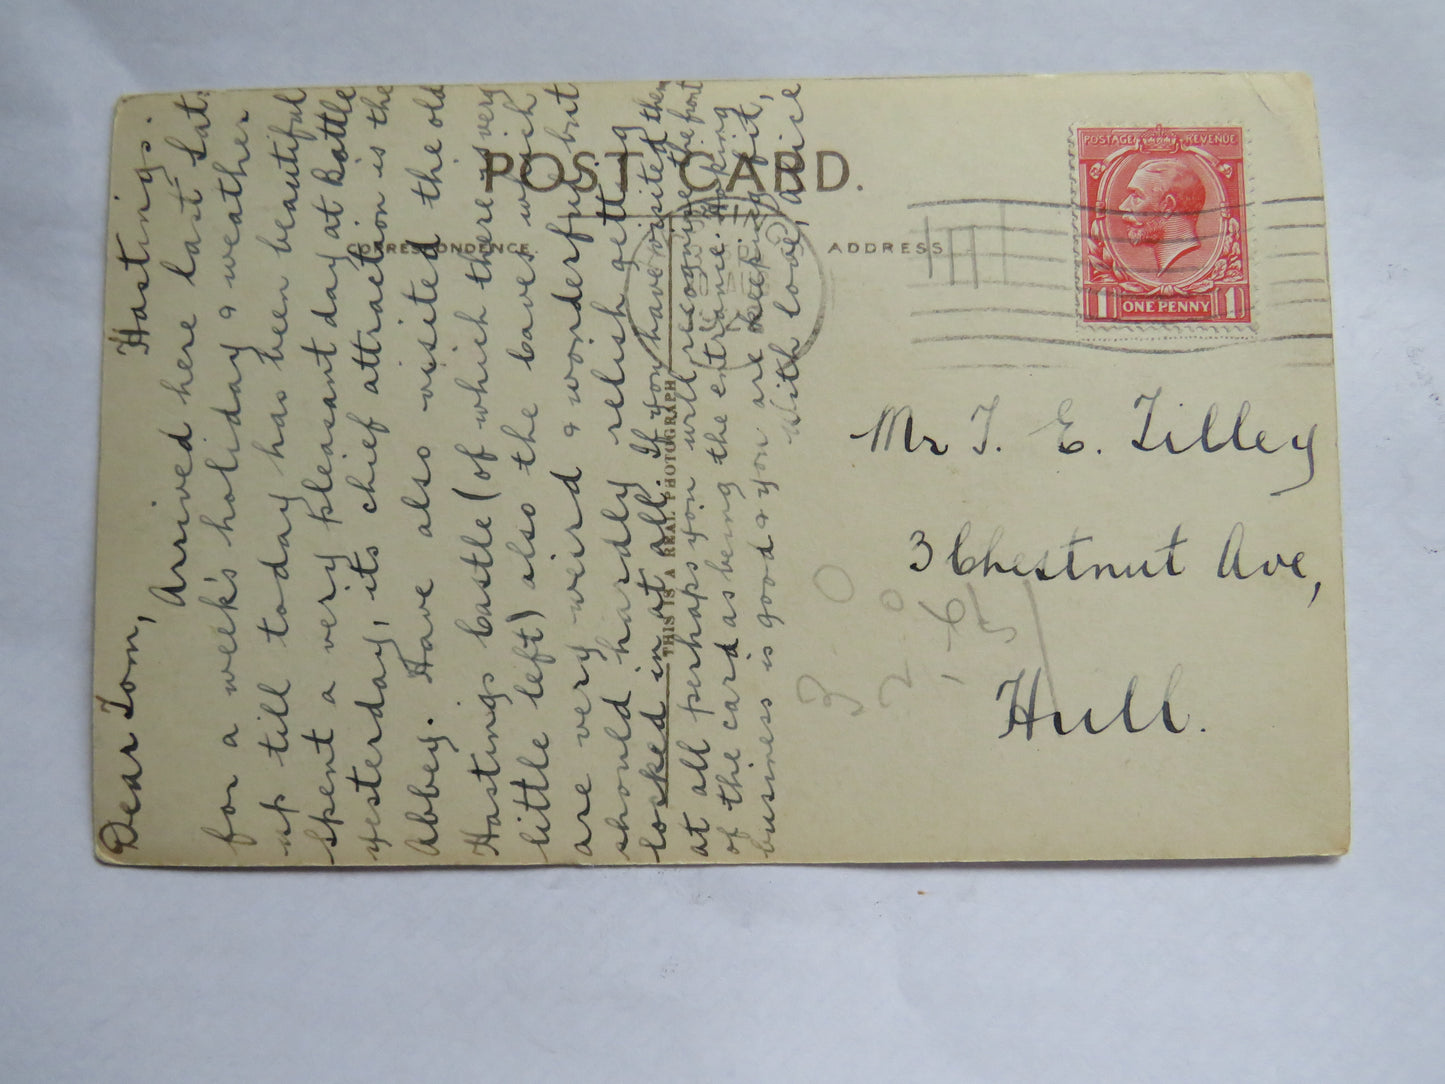 POST CARD.
CORRESPONDENCE
ADDRESS
THIS IS A REAL PHOTOGRAPH
POSTAGE REVENUE
1 ONE PENNY 1
Hastings.
Dear Tom,
Arrived here last Sat:
for a week's holiday & weather
up till today has been beautiful
Spent a very pleasant day at Battle
yesterday, its chief attraction is the
Abbey. Have also visited the old
Hastings Castle (of which there is very
little left) also the Caves which
are very weird & wonderful but
should hardly relish getting
locked in at all. If you have visited them
at all perhaps you will recognise the front
of the card as being the entrance. Hoping
business is good & you are keeping fit,
With love, Alice
Mr T. E. Tilley
3 Chestnut Ave,
Hull.
3 0
2 0